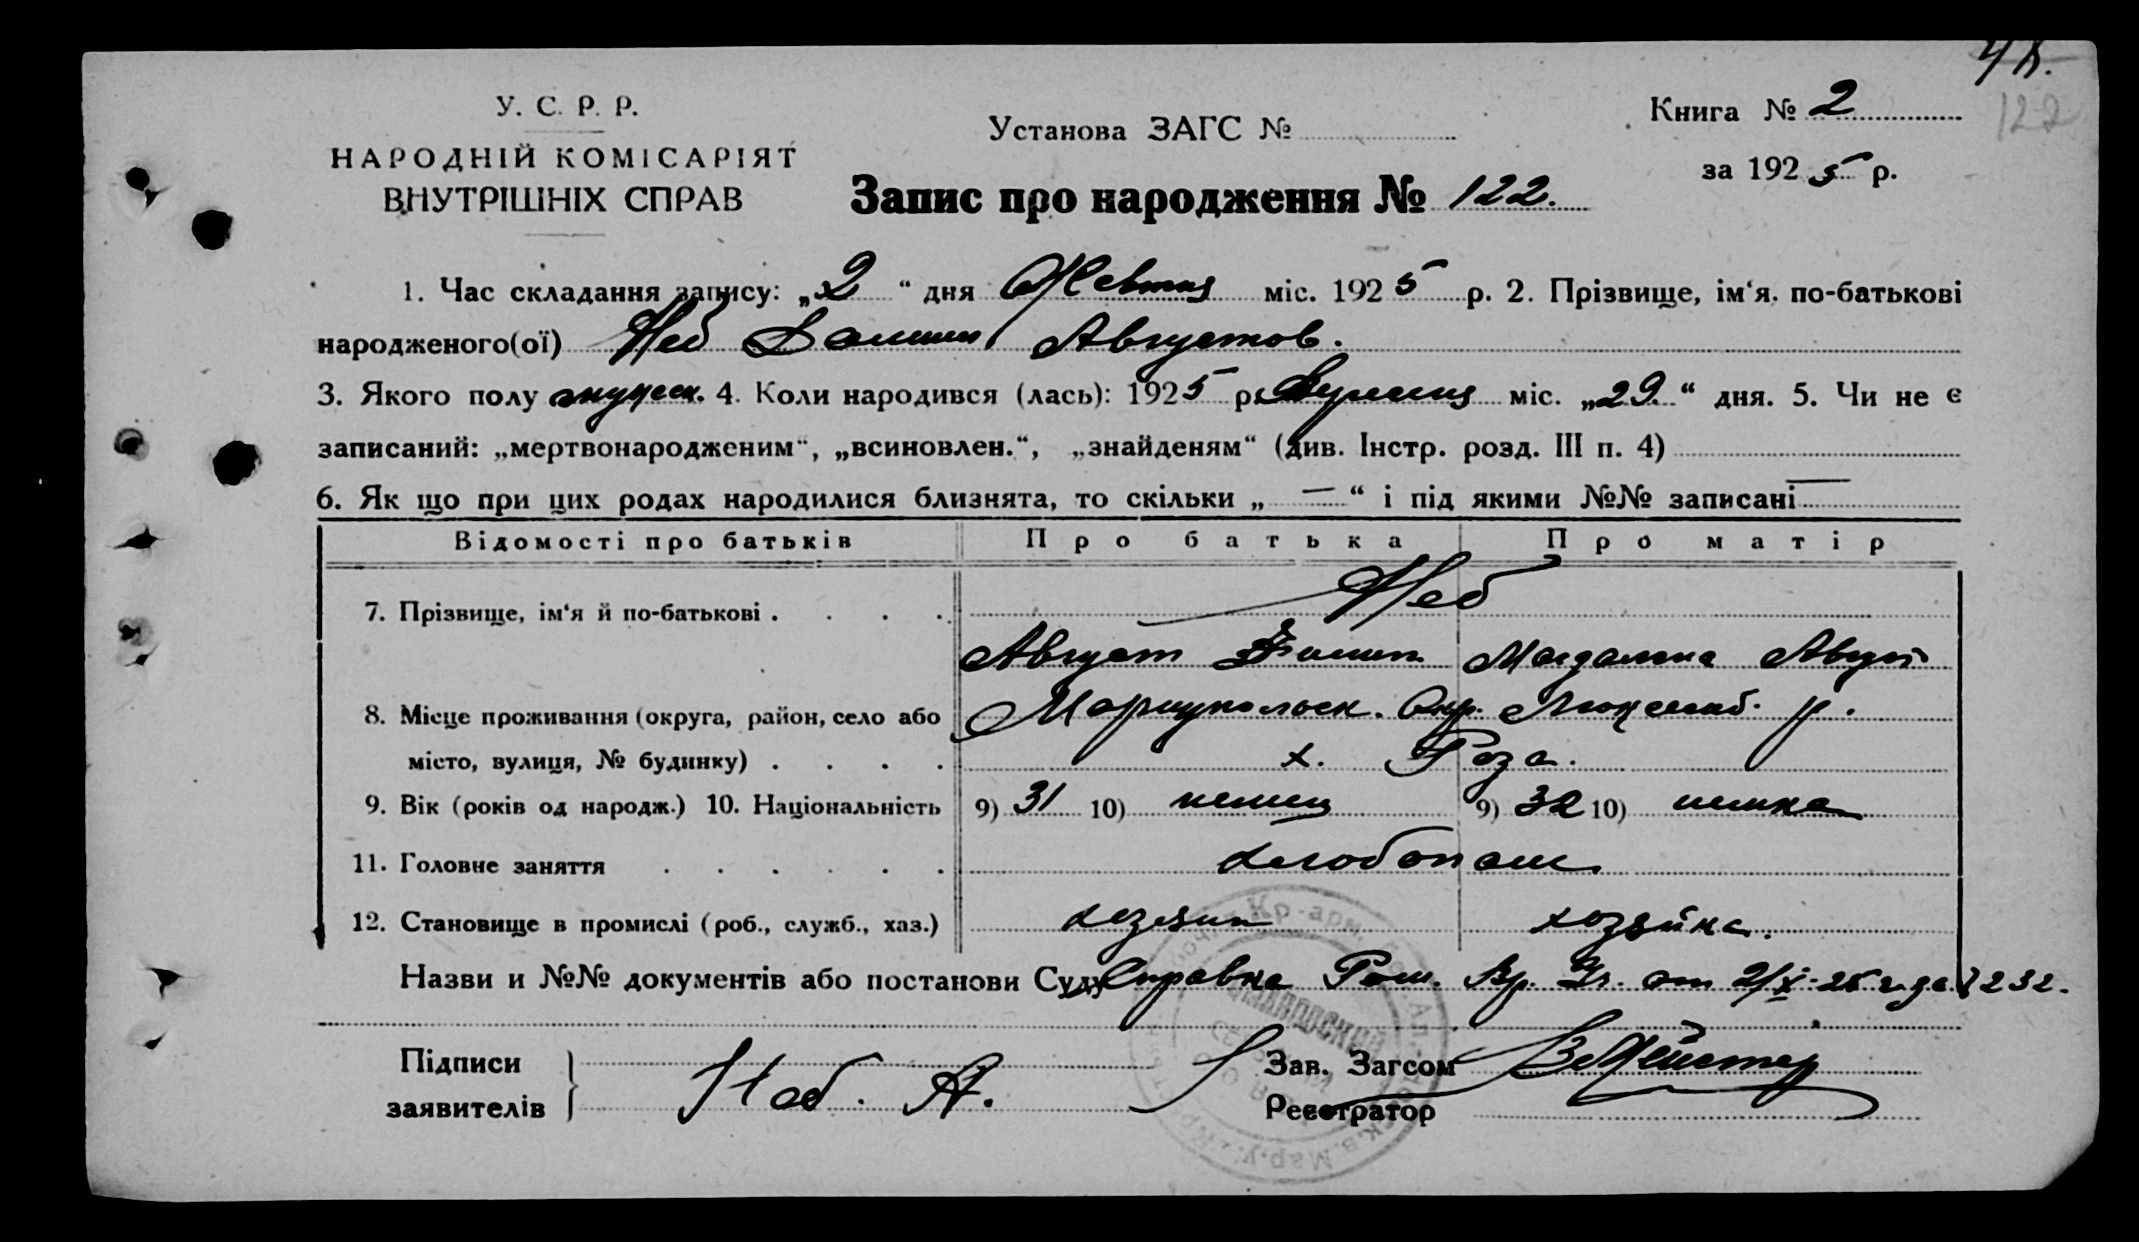 У. С. Р. Р.
НАРОДНІЙ КОМІСАРІЯТ
ВНУТРІШНІХ СПРАВ
Установа ЗАГС №
Запис про народження № 122.
Книга № 2
122
за 1925 р.
1. Час складання запису: „2“ дня Жовтня міс. 1925 р. 2. Прізвище, ім‘я, по-батькові
народженого(ої) Неб Август.
3. Якого полу мужеск. 4. Коли народився (лась): 1925 р. міс. „29“ дня. 5. Чи не є
записаний: „мертвонародженим“, „всиновлен.“, „знайденям“ (див. Інстр. розд. III п. 4)
6. Як що при цих родах народилися близнята, то скільки „ — “ і під якими №№ записані —
Відомості про батьків Про батька Про матір
7. Прізвище, ім‘я й по-батькові . . . . Неб
Август Магдалина Август
8. Місце проживання (округа, район, село або Мариупольск. Окр. Люксемб. р.
місто, вулиця, № будинку) . . . . х. Роза.
9. Вік (років од народж.) 10. Національність 9) 31 10) немец 9) 32 10) немка
11. Головне заняття . . . . . . хлебопаш.
12. Становище в промислі (роб., служб., хаз.) хозяин хозяйка.
Назви и №№ документів або постанови Суду Справка от 2/X-25 года № 232.
Підписи
заявителів
Неб. А.
Зав. Загсом
Реєстратор